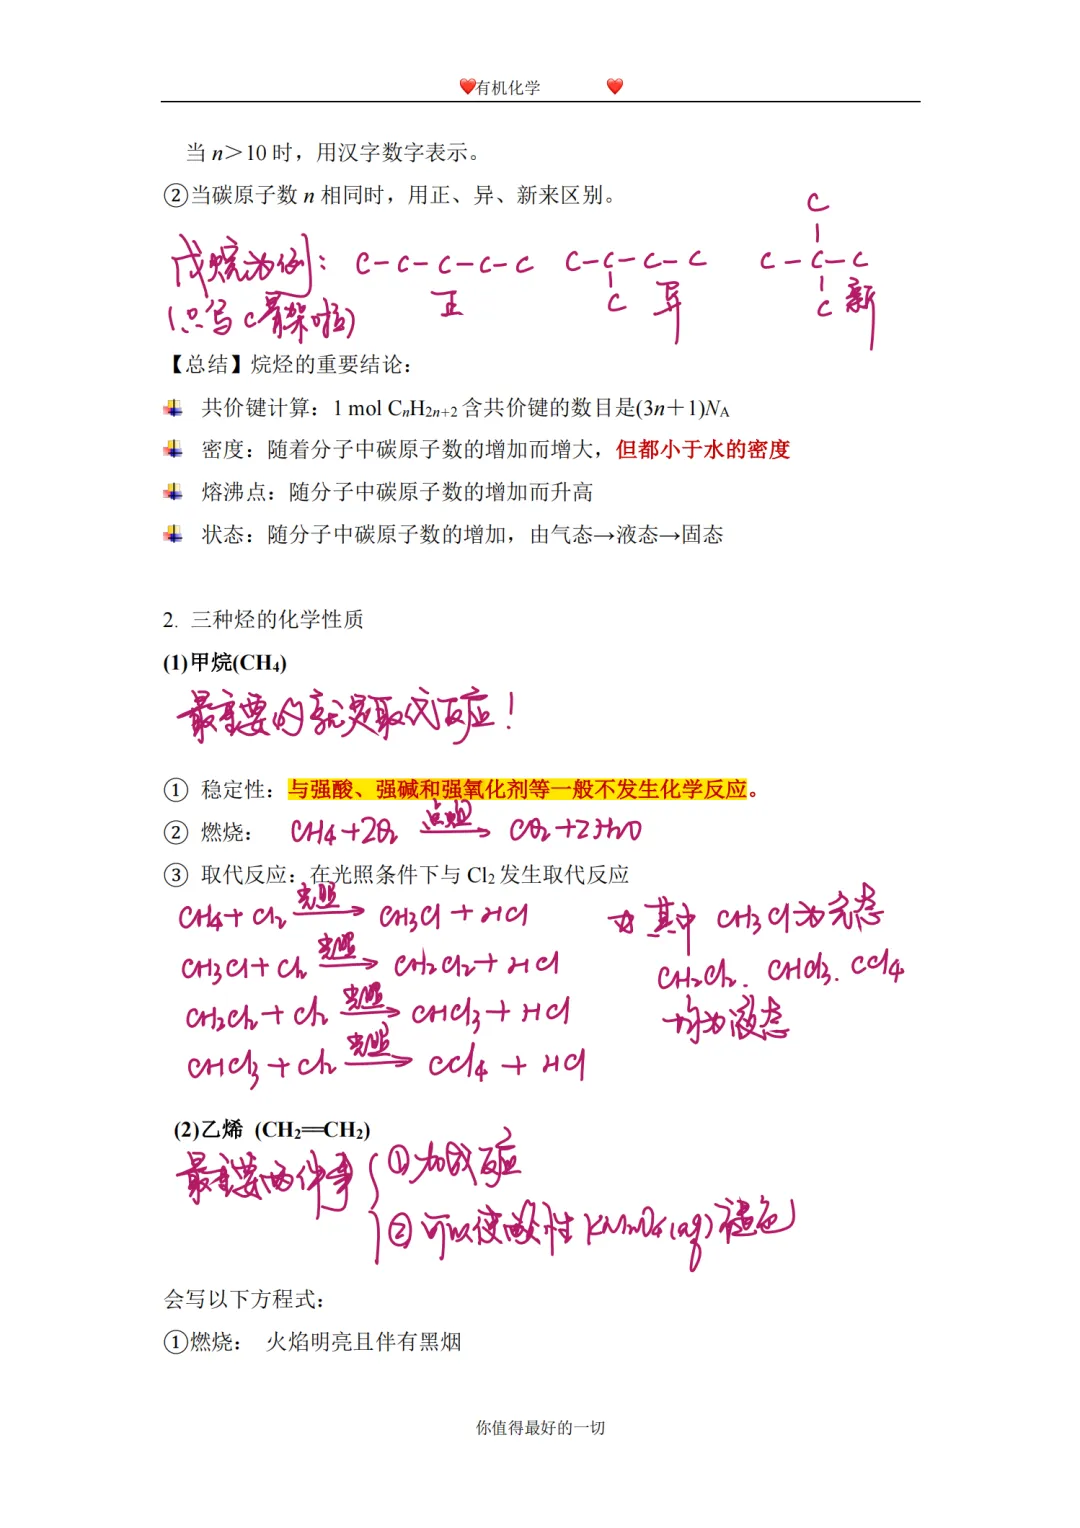 ❤️有机化学 ❤️
当 n＞10 时，用汉字数字表示。
②当碳原子数 n 相同时，用正、异、新来区别。
戊烷为例：C-C-C-C-C C-C-C-C C-C-C
C C C
(只写C骨架啦) 正 异 新
【总结】烷烃的重要结论：
共价键计算：1 mol CnH2n+2 含共价键的数目是(3n＋1)NA
密度：随着分子中碳原子数的增加而增大，但都小于水的密度
熔沸点：随分子中碳原子数的增加而升高
状态：随分子中碳原子数的增加，由气态→液态→固态
2. 三种烃的化学性质
(1)甲烷(CH4)
最重要的就是取代反应！
① 稳定性：与强酸、强碱和强氧化剂等一般不发生化学反应。
② 燃烧： CH4+2O2 点燃→ CO2+2H2O
③ 取代反应：在光照条件下与 Cl2 发生取代反应
CH4+Cl2 光照→ CH3Cl+HCl
CH3Cl+Cl2 光照→ CH2Cl2+HCl
CH2Cl2+Cl2 光照→ CHCl3+HCl
CHCl3+Cl2 光照→ CCl4+HCl
☆其中 CH3Cl为气态
CH2Cl2、CHCl3、CCl4
均为液态
(2)乙烯 (CH2═CH2)
最重要两件事 ①加成反应
②可以使酸性KMnO4(aq)褪色
会写以下方程式：
①燃烧： 火焰明亮且伴有黑烟
你值得最好的一切